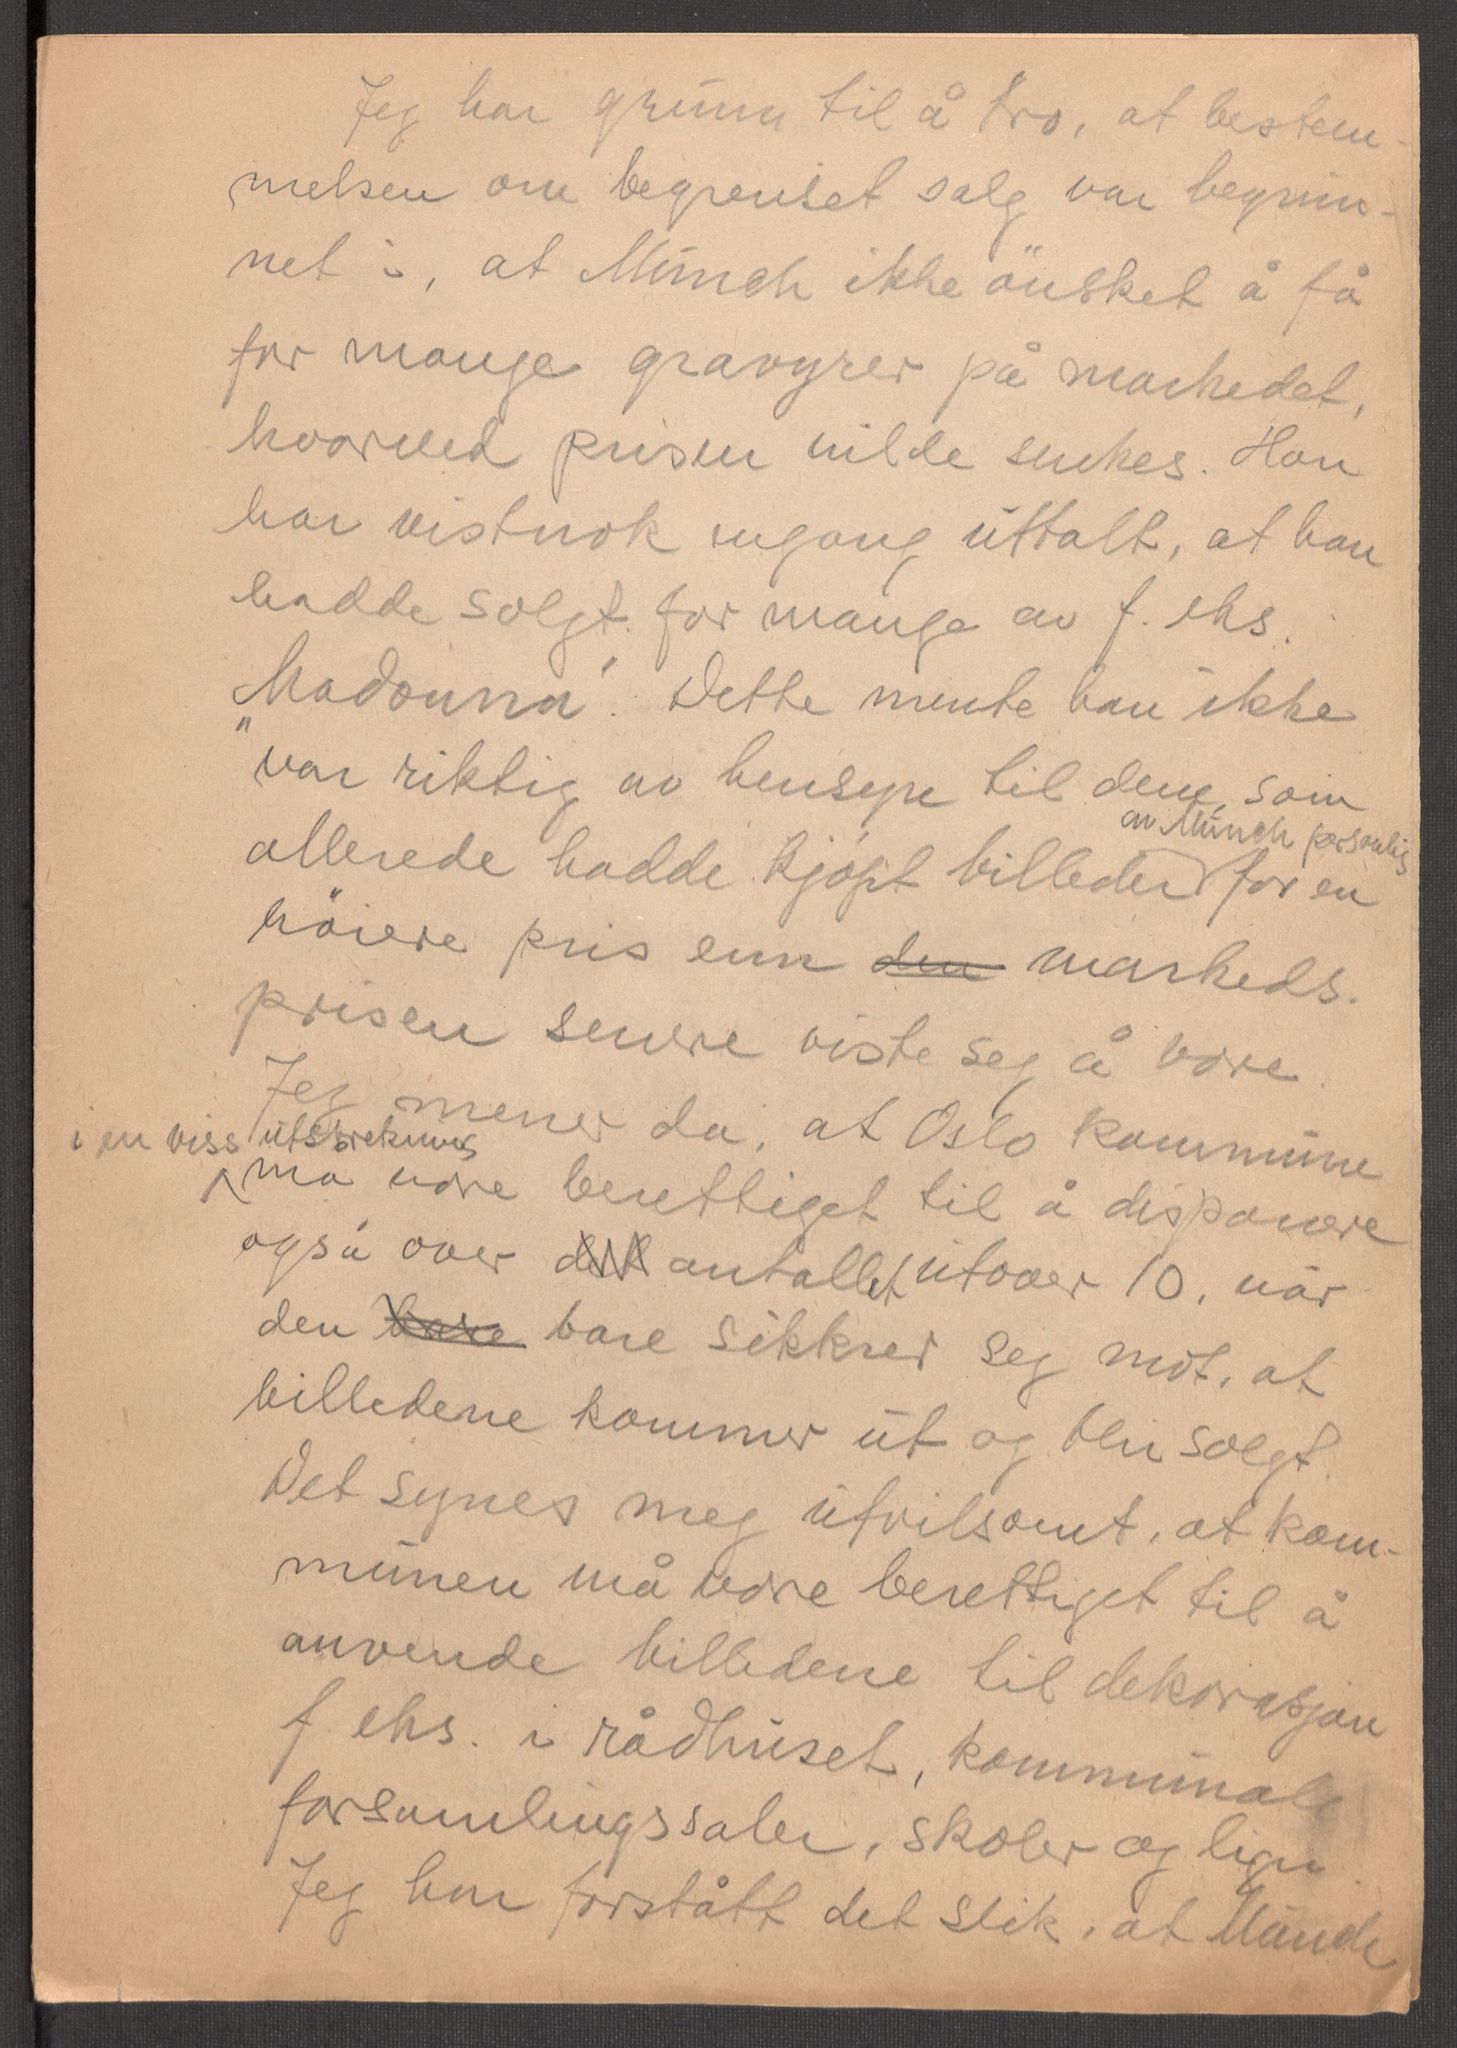 Jeg har grunn til å tro, at bestem-
melsen om begrenset salg var begrun-
net i, at Munch ikke önsket å få
for mange gravyrer på markedet,
hvorved prisen vilde senkes. Han
har vistnok engang uttalt, at han
hadde solgt for mange av f. eks.
„Madonna". Dette mente han ikke
var riktig av hensyn til dem, som
av Munch personlig
allerede hadde kjöpt billeder for en
höiere pris enn den markeds-
prisen senere viste seg å være.
Jeg mener da, at Oslo kommune
i en viss utstrekning
må være berettiget til å disponere
også over det antallet utover 10, når
den bare bare sikkrer seg mot, at
billedene kommer ut og blir solgt.
Det synes meg utvilsomt, at kom-
munen må være berettiget til å
anvende billedene til dekorasjon
f. eks. i rådhuset, kommunale
forsamlingssaler, skoler og lign.
Jeg har forstått det slik, at Munch